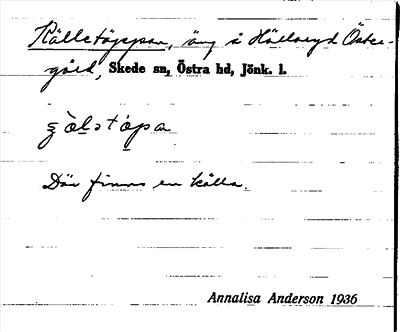 Källetäppan, äng å Hällaryd Öster-
gård, Skede sn, Östra hd, Jönk. l.
Där finns en källa.
Annalisa Anderson 1936